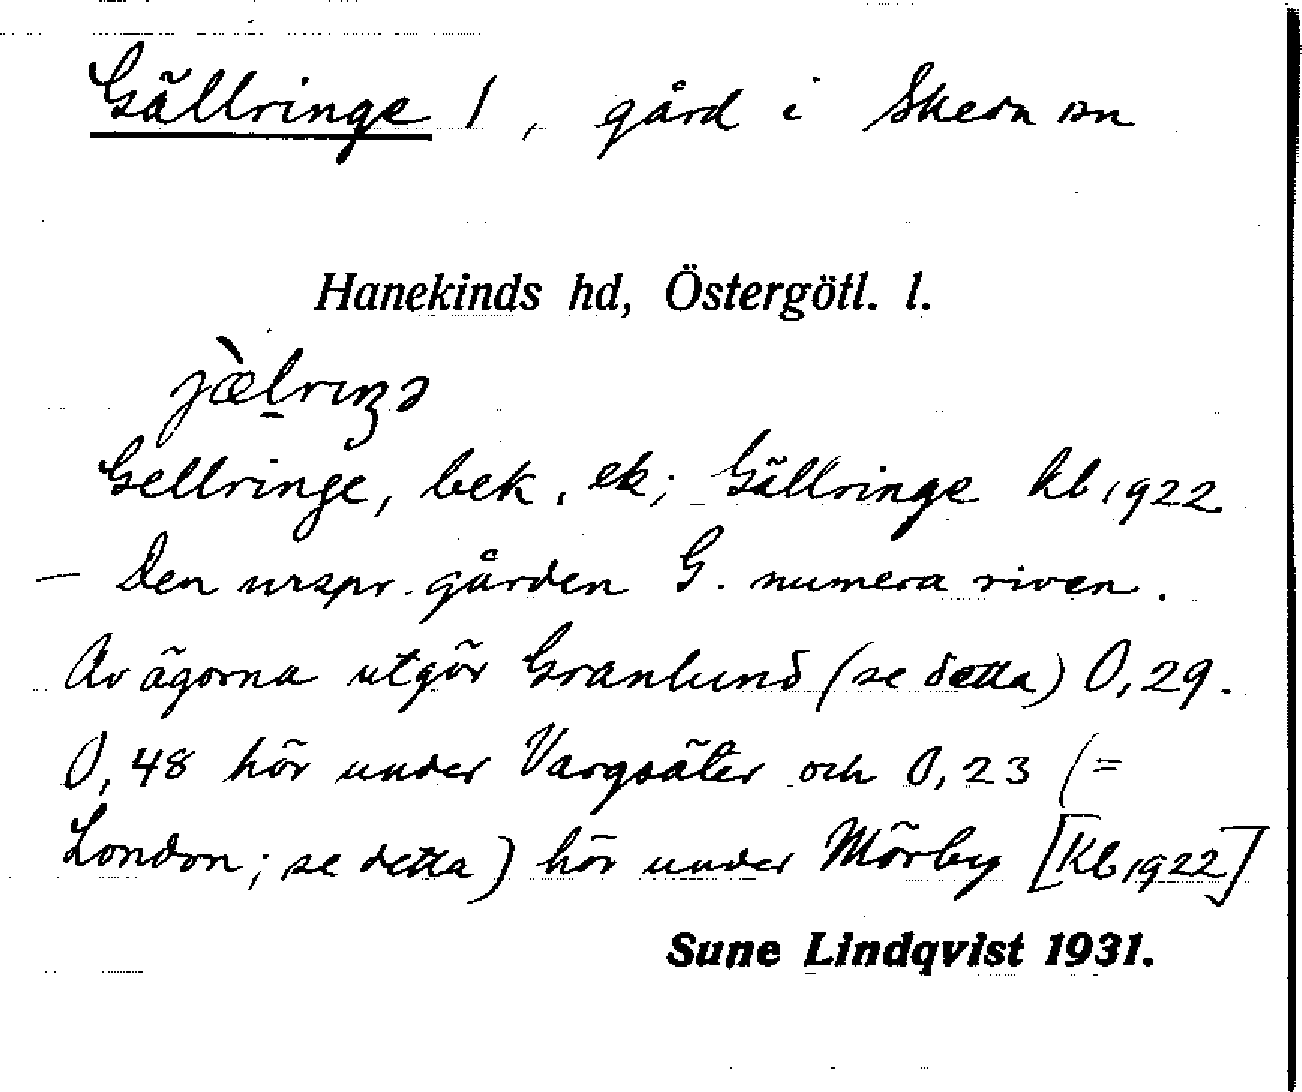 Gällringe 1, gård i Skeda sn
Hanekinds hd, Östergötl. l.
Gellringe, bek. ek; Gällringe Kb 1922
– Den urspr. gården G. numera riven.
Av ägorna utgör Granlund (se detta) 0,29.
0,48 hör under Vargsäter och 0,23 (=
London; se detta) hör under Mörby [Kb 1922]
Sune Lindqvist 1931.